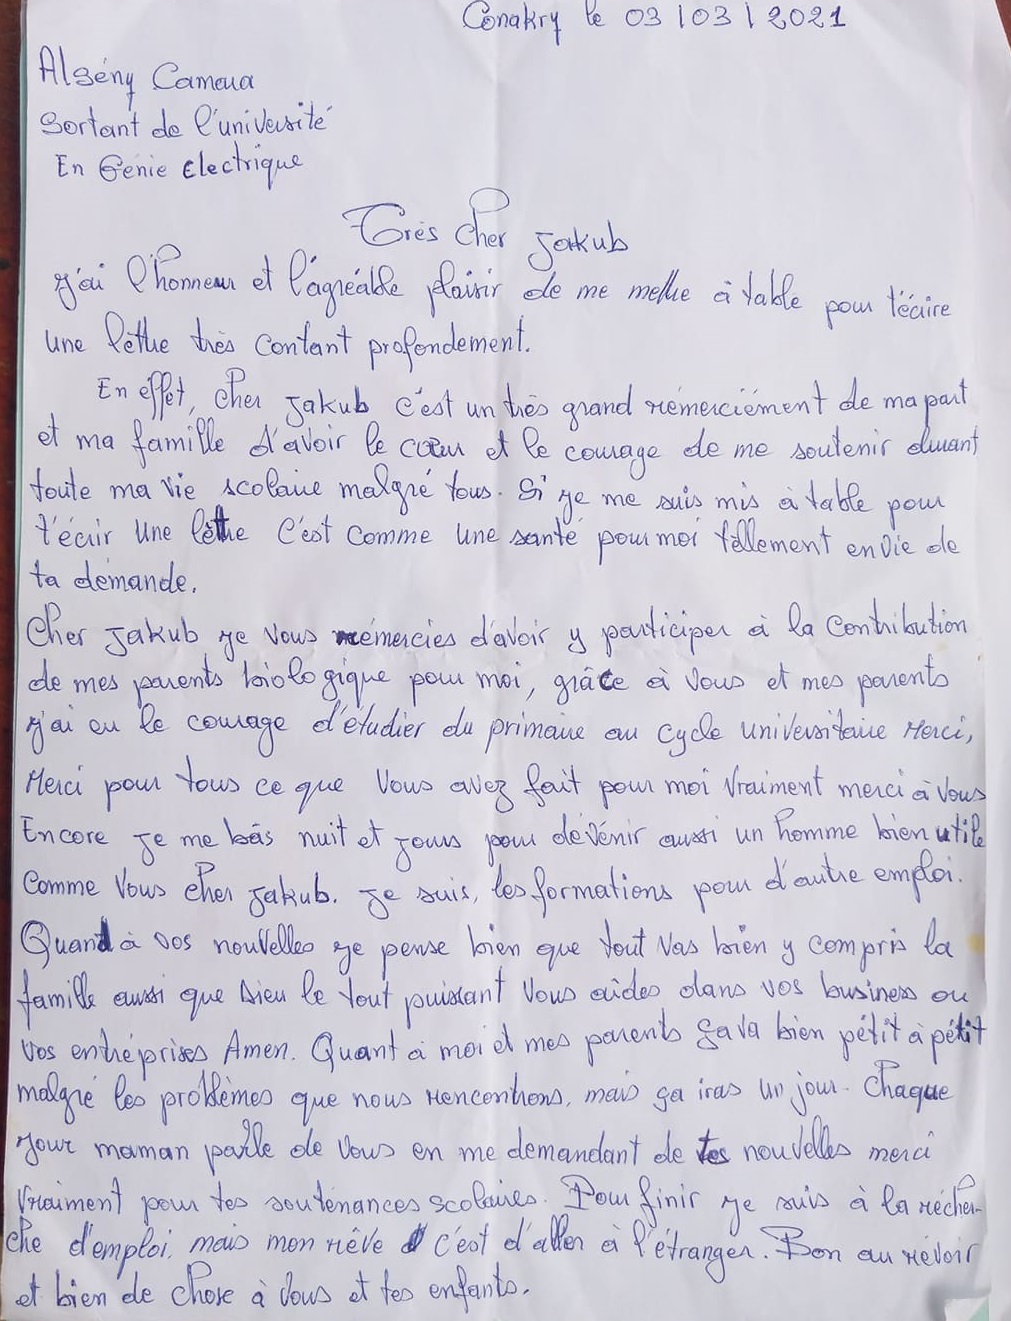 Conakry le 03/03/2021
Alsény Camara
Sortant de l'université
En Génie Electrique
Très cher Jakub
j'ai l'honneur et l'agréable plaisir de me mettre à table pour t'écrire
une lettre très contant profondement.
En effet, cher Jakub c'est un très grand rémerciément de ma part
et ma famille d'avoir le cœur et le courage de me soutenir durant
toute ma vie scolaire malgré tous. Si je me suis mis à table pour
t'écrir une lettre c'est comme une santé pour moi téllement envie de
ta demande.
Cher Jakub je vous rémercies d'avoir y participer à la contribution
de mes parents biologique pour moi, grâce à vous et mes parents
j'ai eu le courage d'étudier du primaire au cycle universitaire Merci,
Merci pour tous ce que vous avez fait pour moi vraiment merci à vous
Encore je me bas nuit et jours pour dévénir aussi un homme bien utile
comme vous cher Jakub. Je suis, les formations pour d'autre emploi.
Quand à vos nouvelles je pense bien que tout vas bien y compris la
famille aussi que Dieu le tout puissant vous aides dans vos business ou
vos entréprises Amen. Quant à moi et mes parents ça va bien pétit à pétit
malgré les problèmes que nous rencontrons, mais ça iras un jour. Chaque
jour maman parle de vous en me demandant de tes nouvelles merci
vraiment pour tes soutenances scolaires. Pour finir je suis à la récher-
che d'emploi, mais mon rêve c'est d'aller à l'étranger. Bon au révoir
et bien de chose à vous et tes enfants.